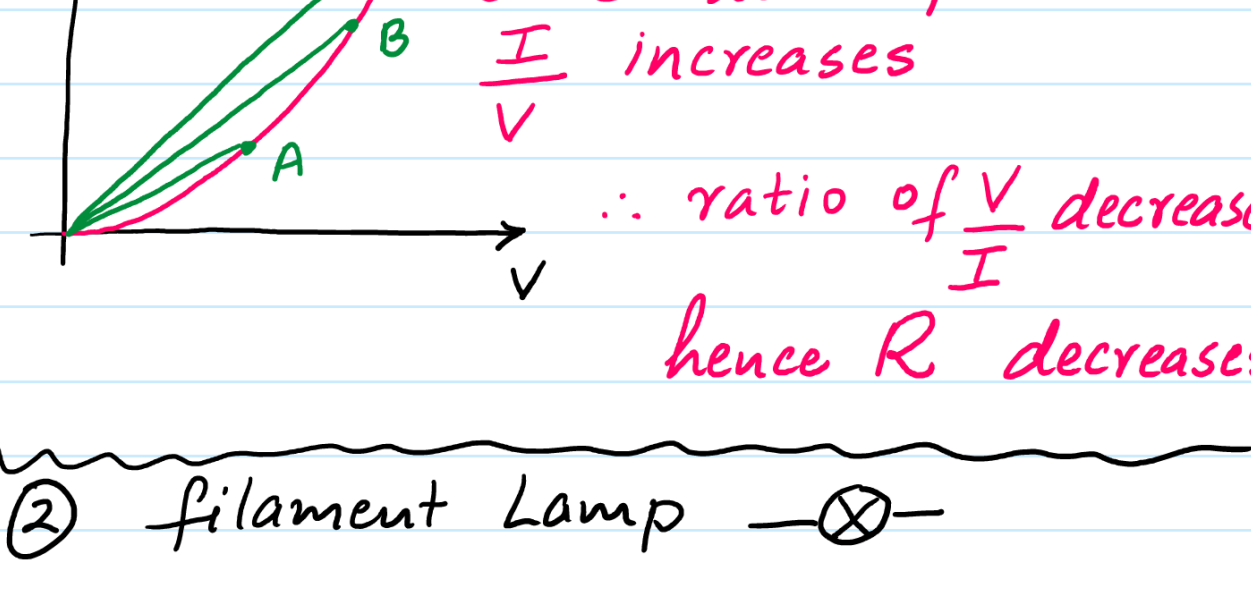 B
I
increases
V
A
∴ ratio of V decreas
I
V
hence R decreases
2 filament Lamp